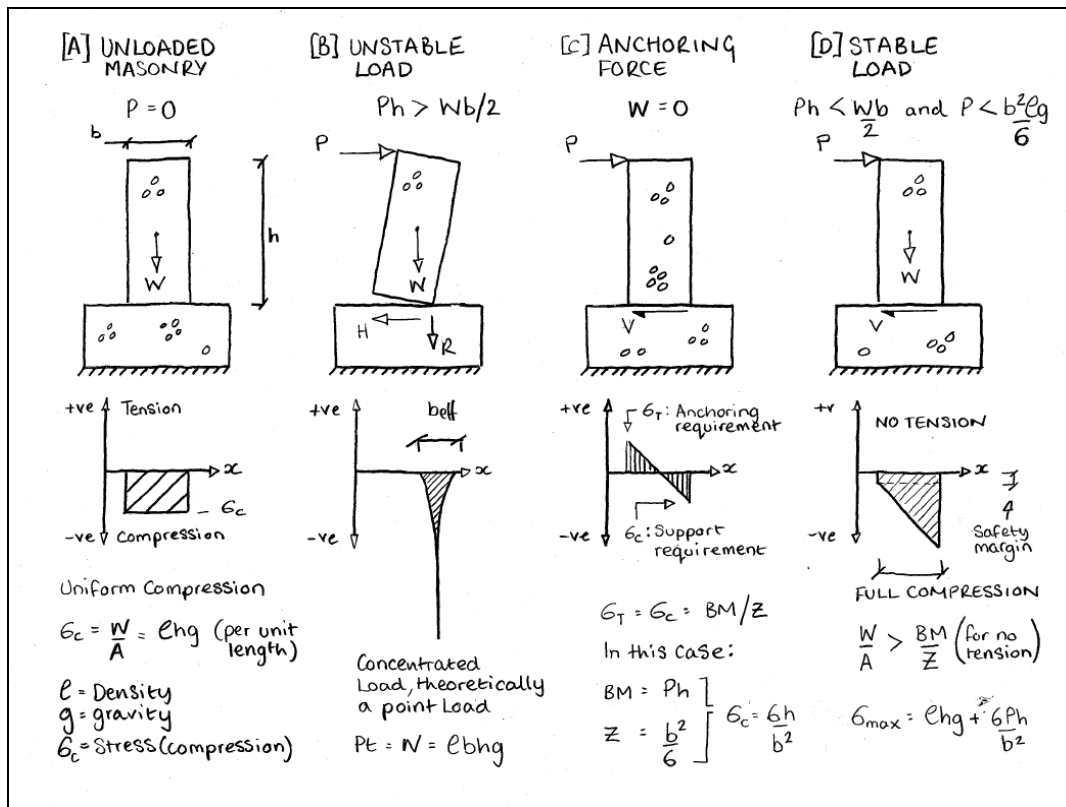 [A] UNLOADED
MASONRY
P = 0
b
h
W
+ve
Tension
x
σc
-ve
Compression
Uniform Compression
σc = W/A = ρhg (per unit
length)
ρ = Density
g = gravity
σc = Stress (compression)
[B] UNSTABLE
LOAD
Ph > Wb/2
P
W
H
R
+ve
beff
x
-ve
Concentrated
Load, theoretically
a point Load
Pt = W = ρbhg
[C] ANCHORING
FORCE
W = 0
P
V
+ve
σT: Anchoring
requirement
x
σc: Support
requirement
-ve
σT = σc = BM/Z
In this case:
BM = Ph
Z = b²/6
σc = 6h/b²
[D] STABLE
LOAD
Ph < Wb/2 and P < b²ρg/6
P
W
V
+v
NO TENSION
x
Safety
margin
-ve
FULL COMPRESSION
W/A > BM/Z (for no
tension)
σmax = ρhg + 6Ph/b²